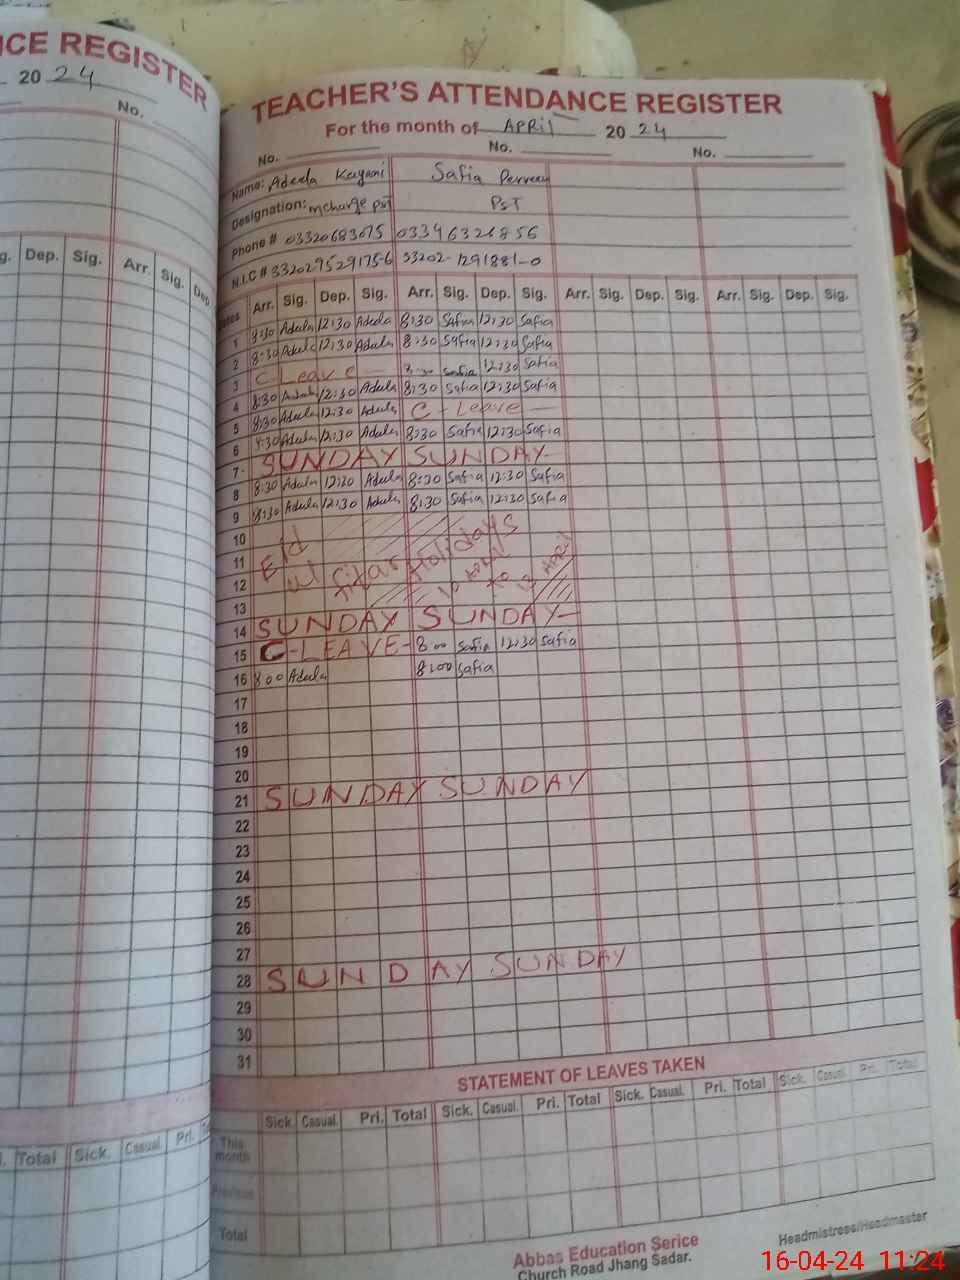 CE REGISTER
20 24
No.
TEACHER'S ATTENDANCE REGISTER
For the month of APRIL 20 24
No. No. No.
Name: Adeela Kayani Safia Perveen
Designation: incharge PST PST
Phone # 03320683675 03346326856
N.I.C # 33202-9529175-6 33202-1291881-0
g. Dep. Sig. Arr. Sig. Dep
Dates Arr. Sig. Dep. Sig. Arr. Sig. Dep. Sig. Arr. Sig. Dep. Sig. Arr. Sig. Dep. Sig.
1 8:30 Adeela 12:30 Adeela 8:30 Safia 12:30 Safia
2 8:30 Adeela 12:30 Adeela 8:30 Safia 12:30 Safia
3 C-Leave — 8:30 Safia 12:30 Safia
4 8:30 Adeela 12:30 Adeela 8:30 Safia 12:30 Safia
5 8:30 Adeela 12:30 Adeela C-Leave —
6 8:30 Adeela 12:30 Adeela 8:30 Safia 12:30 Safia
7 SUNDAY SUNDAY-
8 8:30 Adeela 12:30 Adeela 8:30 Safia 12:30 Safia
9 8:30 Adeela 12:30 Adeela 8:30 Safia 12:30 Safia
10
11 Eid
12 ul fitar Holidays
10 APRIL to 13 APRIL
13
14 SUNDAY SUNDAY-
15 C-LEAVE- 8:00 Safia 12:30 Safia
16 8:00 Adeela 8:00 Safia
17
18
19
20
21 SUNDAY SUNDAY
22
23
24
25
26
27
28 SUNDAY SUNDAY
29
30
31
STATEMENT OF LEAVES TAKEN
Total Sick. Casual. Pri.
Sick. Casual. Pri. Total Sick. Casual. Pri. Total Sick. Casual. Pri. Total Sick. Casual. Pri. Total
This month
Previous
Total
Abbas Education Serice
Church Road Jhang Sadar.
Headmistress/Headmaster
16-04-24 11:24